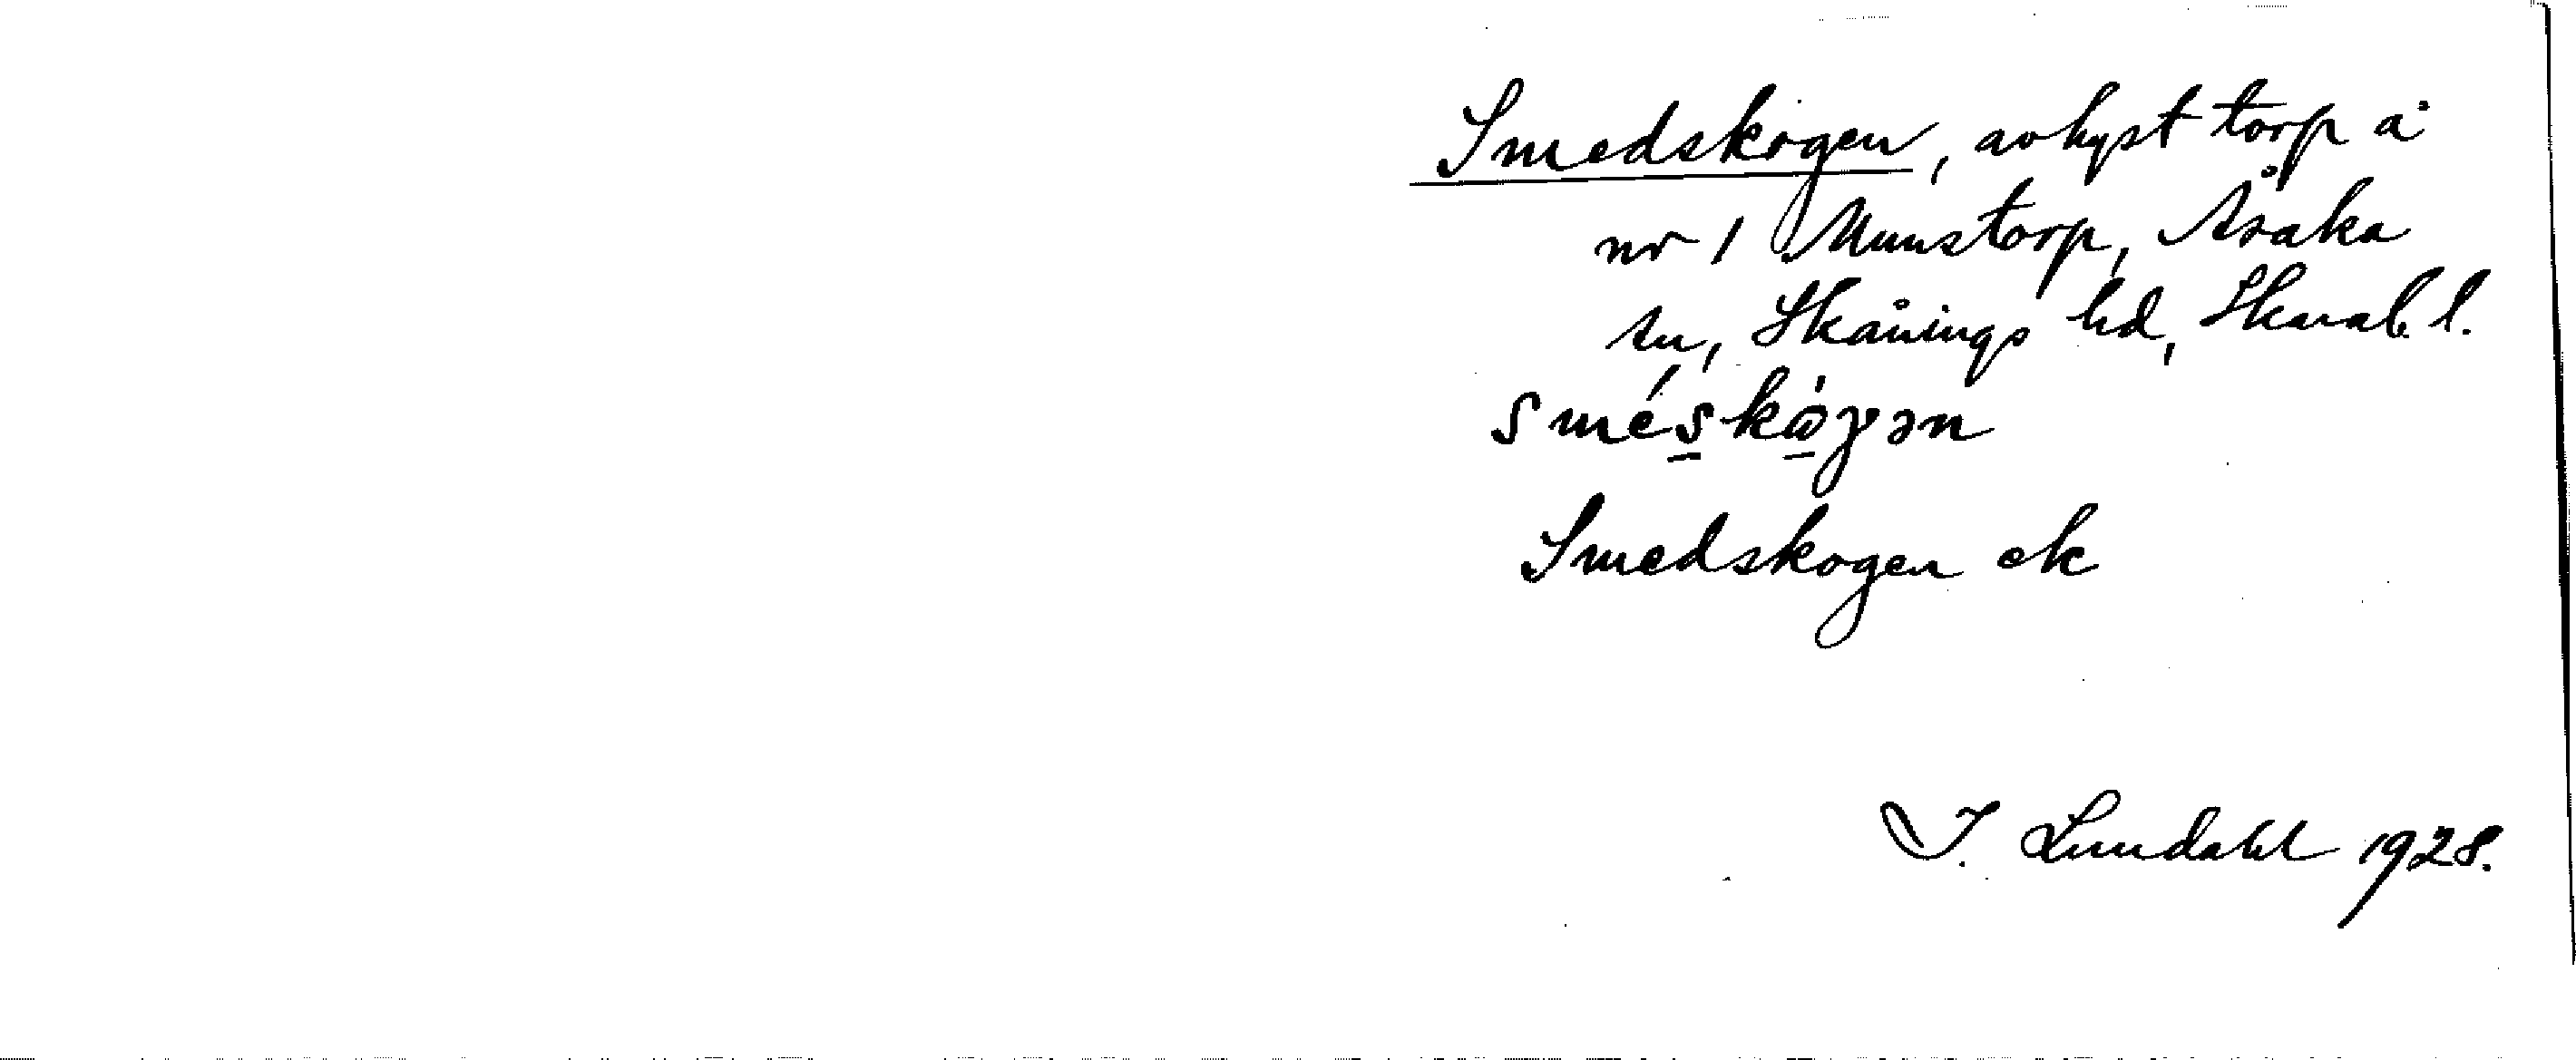 Smedskogen, avhyst torp å
nr 1 Munstorp, Åsaka
sn, Skånings hd, Skarab. l.
smés̱kὼ̱γən
Smedskogen ek
I. Lundahl 1928.